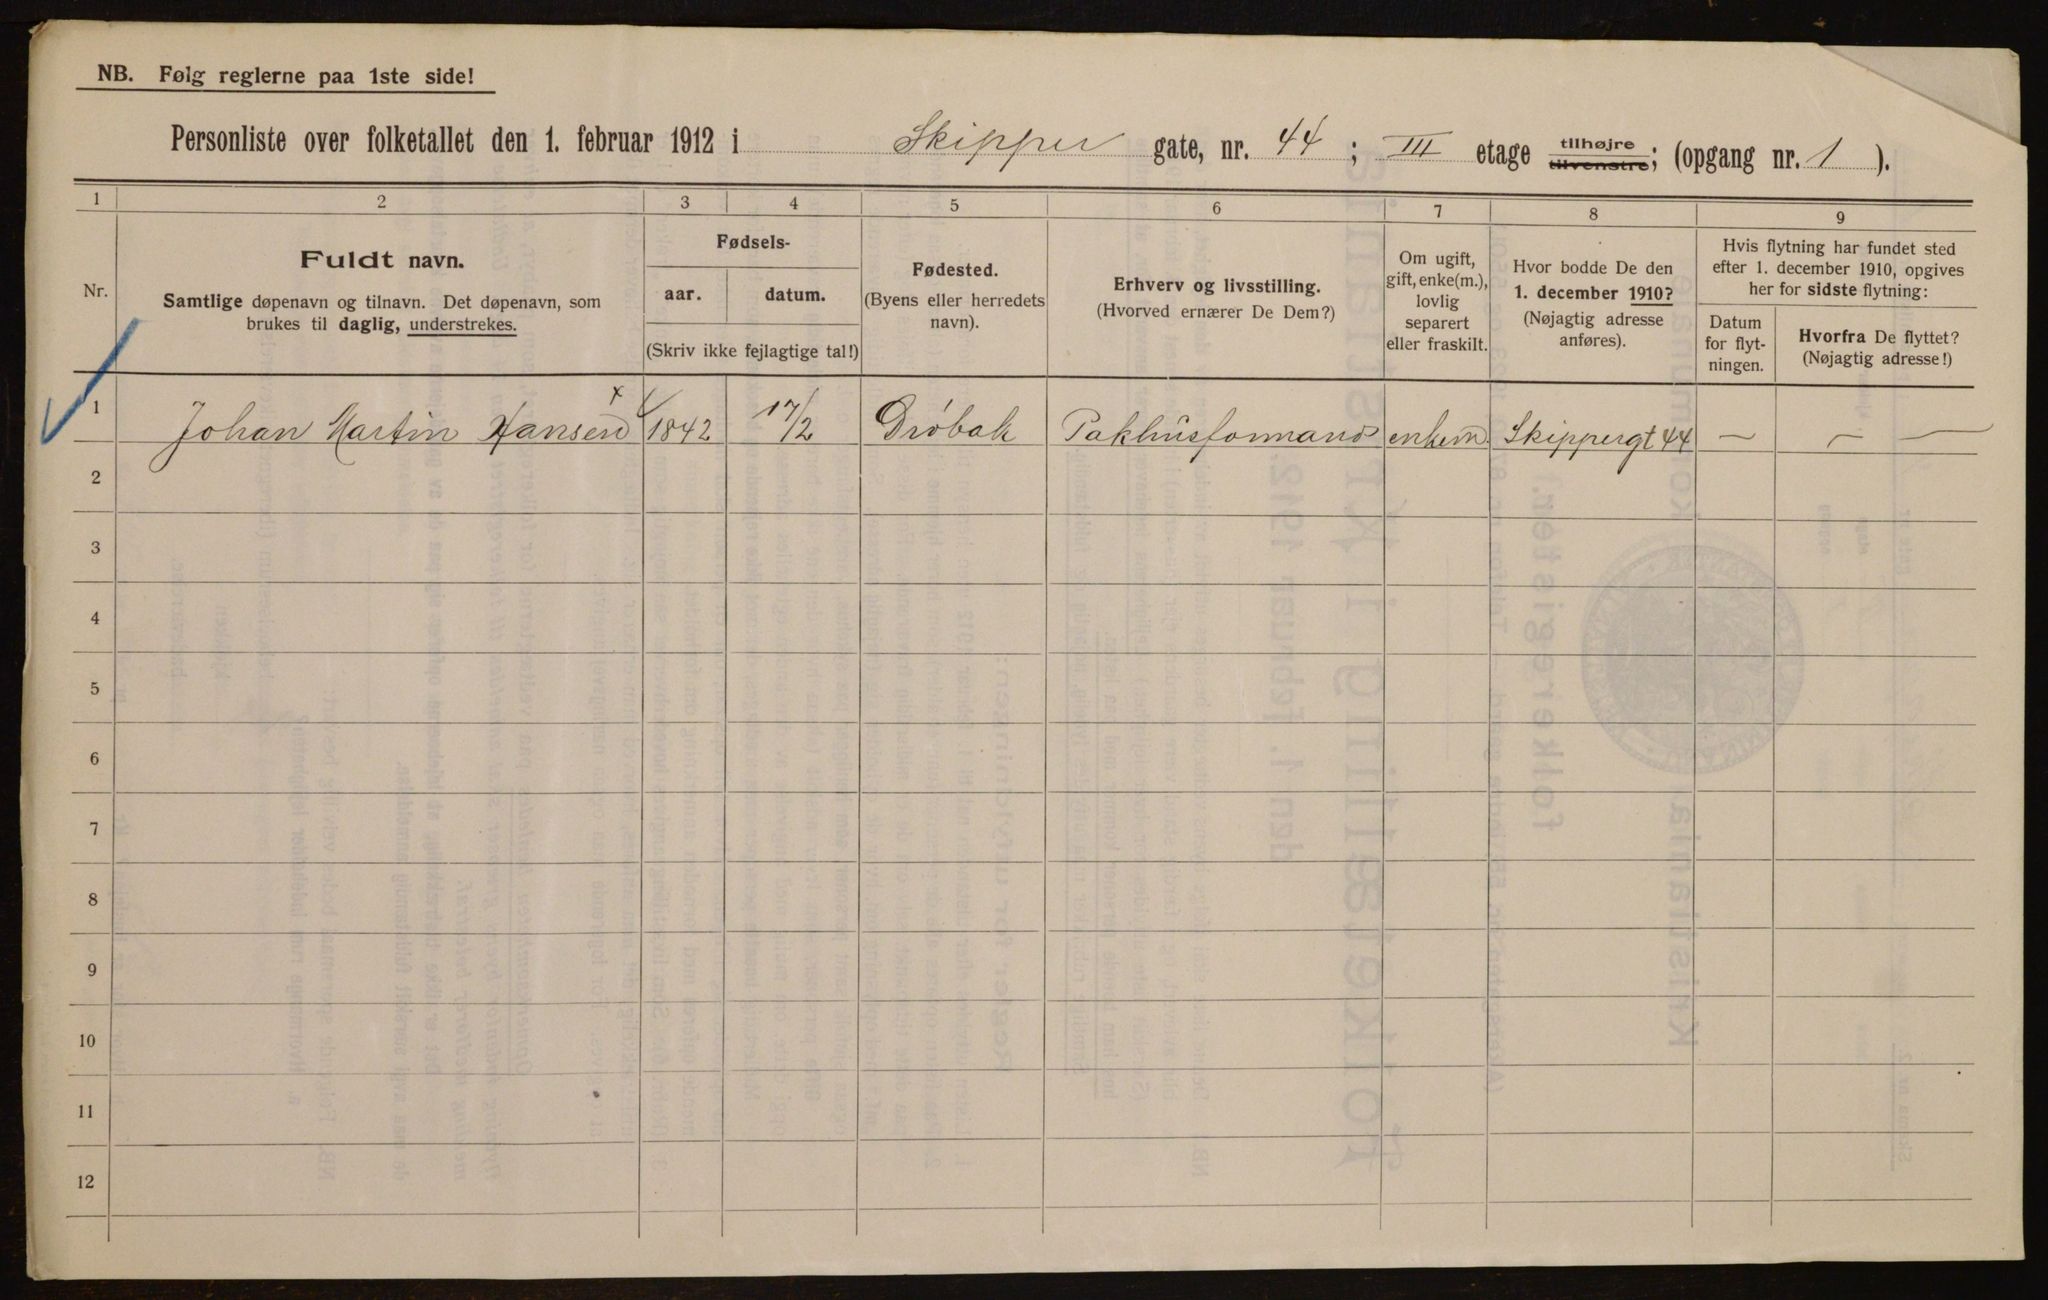 NB. Følg reglerne paa 1ste side!
Personliste over folketallet den 1. februar 1912 i Skipper gate, nr. 44; III etage tilhøjre tilvenstre; (opgang nr. 1).
1 2 3 4 5 6 7 8 9
Nr.
Fuldt navn.
Samtlige døpenavn og tilnavn. Det døpenavn, som
brukes til daglig, understrekes.
Fødsels-
aar.
datum.
(Skriv ikke fejlagtige tal!)
Fødested.
(Byens eller herredets
navn).
Erhverv og livsstilling.
(Hvorved ernærer De Dem?)
Om ugift,
gift, enke(m.),
lovlig
separert
eller fraskilt.
Hvor bodde De den
1. december 1910?
(Nøjagtig adresse
anføres).
Hvis flytning har fundet sted
efter 1. december 1910, opgives
her for sidste flytning:
Datum
for flyt-
ningen.
Hvorfra De flyttet?
(Nøjagtig adresse!)
1 Johan Martin Hansen 1842 17/2 Drøbak Pakhusformand enkem. Skippergt 44 — — —
2
3
4
5
6
7
8
9
10
11
12